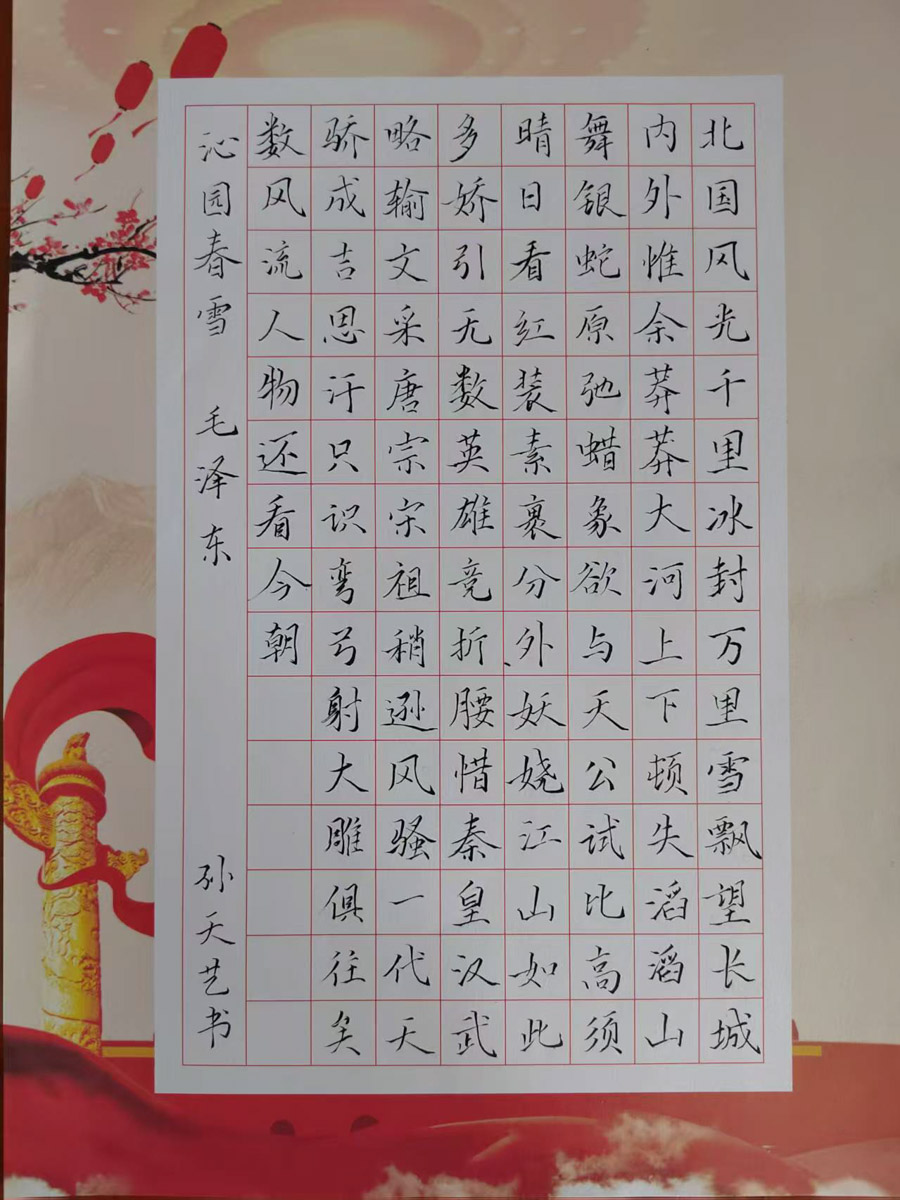 北国风光千里冰封万里雪飘望长城
内外惟余莽莽大河上下顿失滔滔山
舞银蛇原弛蜡象欲与天公试比高须
晴日看红装素裹分外妖娆江山如此
多娇引无数英雄竞折腰惜秦皇汉武
略输文采唐宗宋祖稍逊风骚一代天
骄成吉思汗只识弯弓射大雕俱往矣
数风流人物还看今朝
沁园春雪 毛泽东 孙天艺书